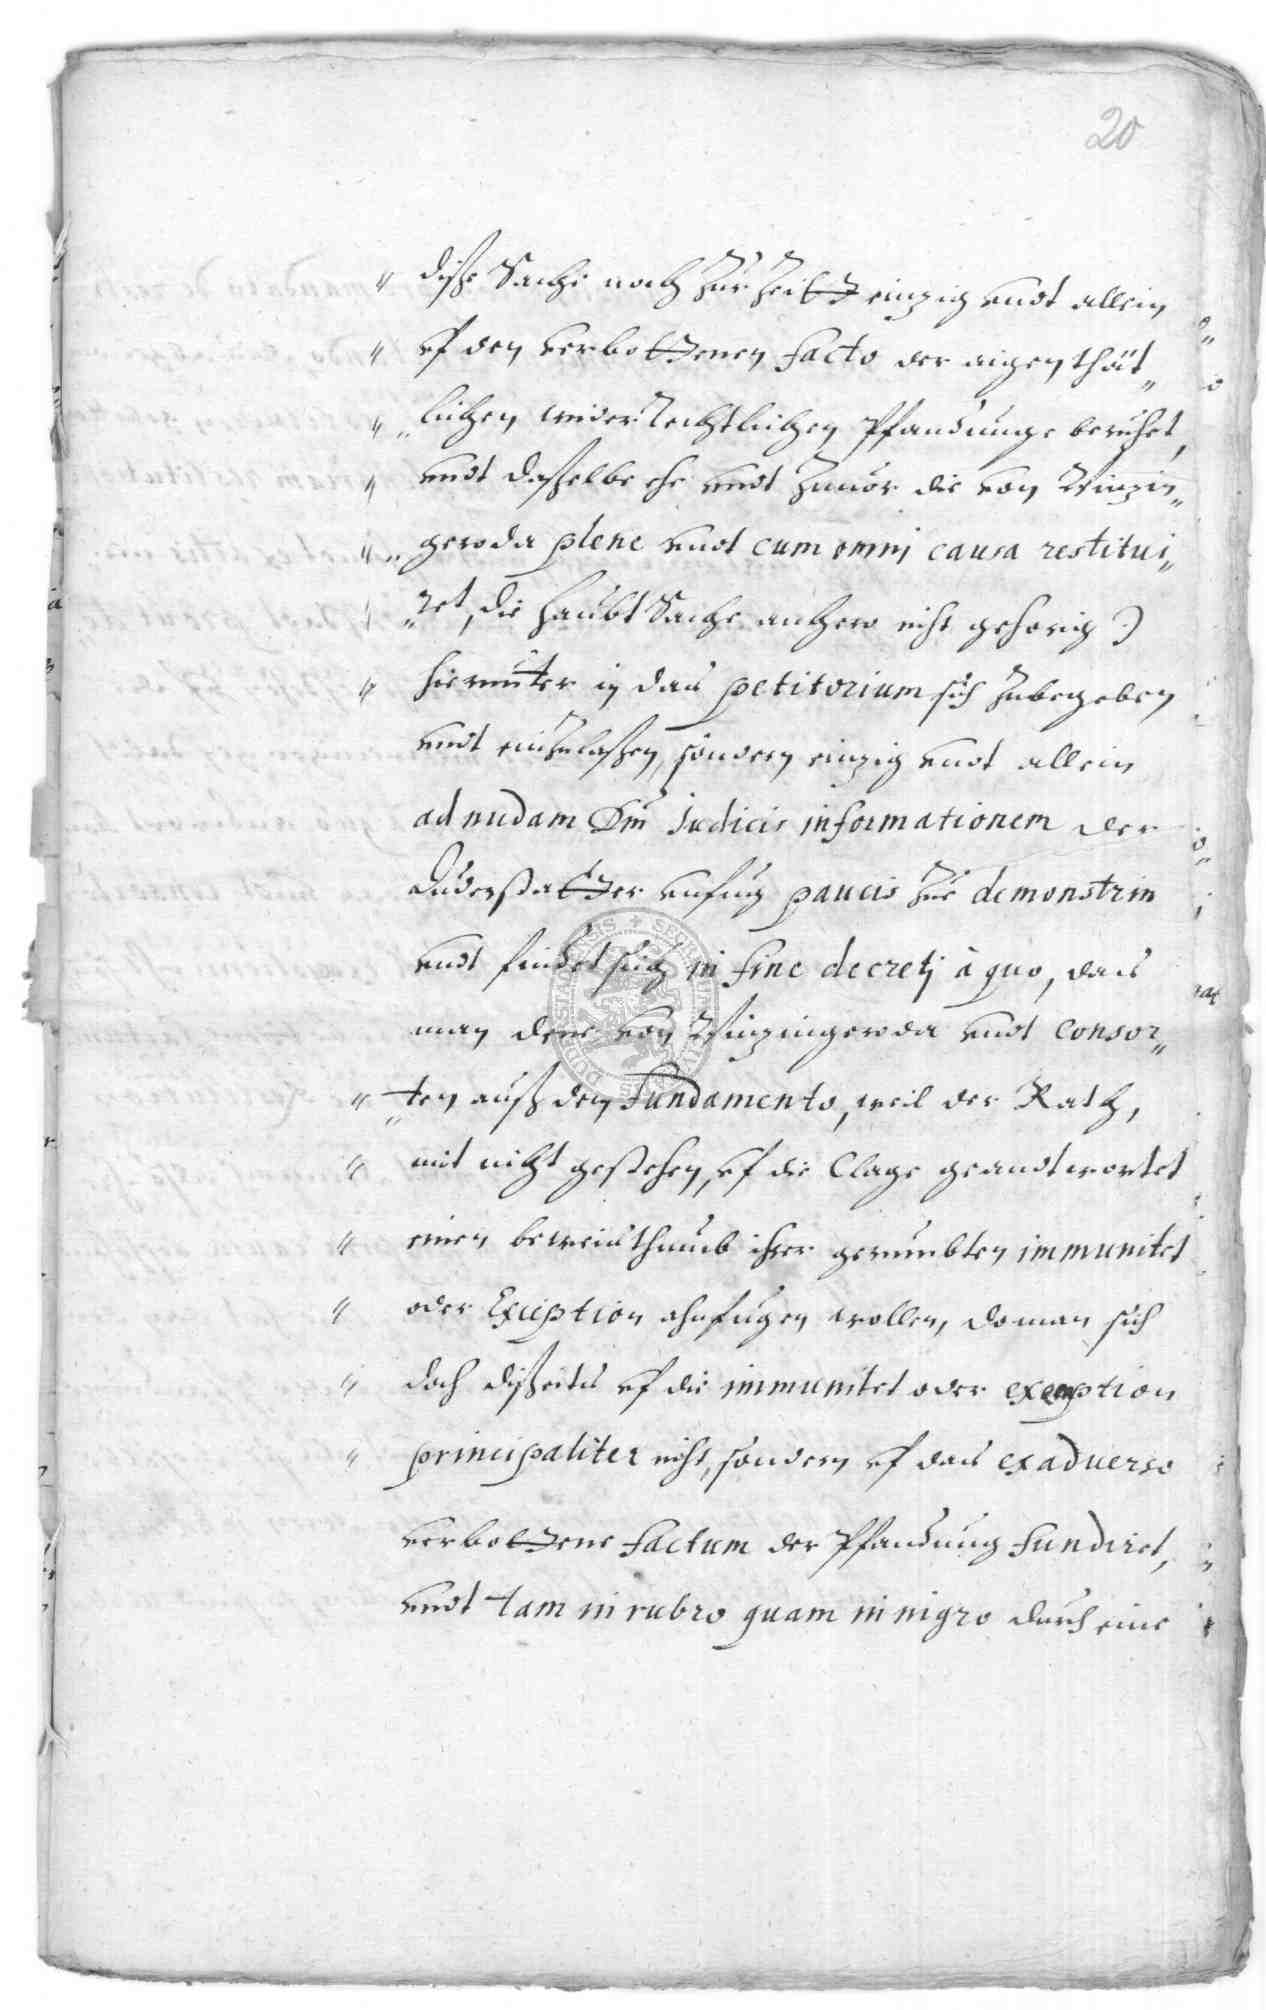 20
" diße Sache noch zur Zeitt einzig vndt allein
" vf den verbottenen facto der aigenthät„
" „lichen wiederrechtlichen Pfandunge beruhet,
" vndt daßelbe ehe vndt zuuor die von Winzin„
" „geroda plene vndt cum omnj causa restitui„
" „ret, die HaubtSache anhero nicht gehorig :)
" hierunter in das petitorium sich zubegeben
vndt einzulaßen, sondern einzig vndt allein
ad nudam Dnj Judicis informationem der
Duderstatter vnfug paucis zue demonstrirn
vndt findet sich in fine decretj à quo, das
man denen von Winzingeroda vndt Consor„
" „ten auß den Fundamento, weil der Rath,
" mit nicht gestehen, vf die Clage geandtwortet
" einen beweisthumb ihrer gerumbten immunitet
" oder Exception ahnfugen wollen, do man sich
" doch dißeits vf die immunitet oder exemption
" principaliter nicht, sondern vf das ex aduerso
verbottene factum der Pfandung fundiret,
vndt tam in rubro quam in nigro durch eine